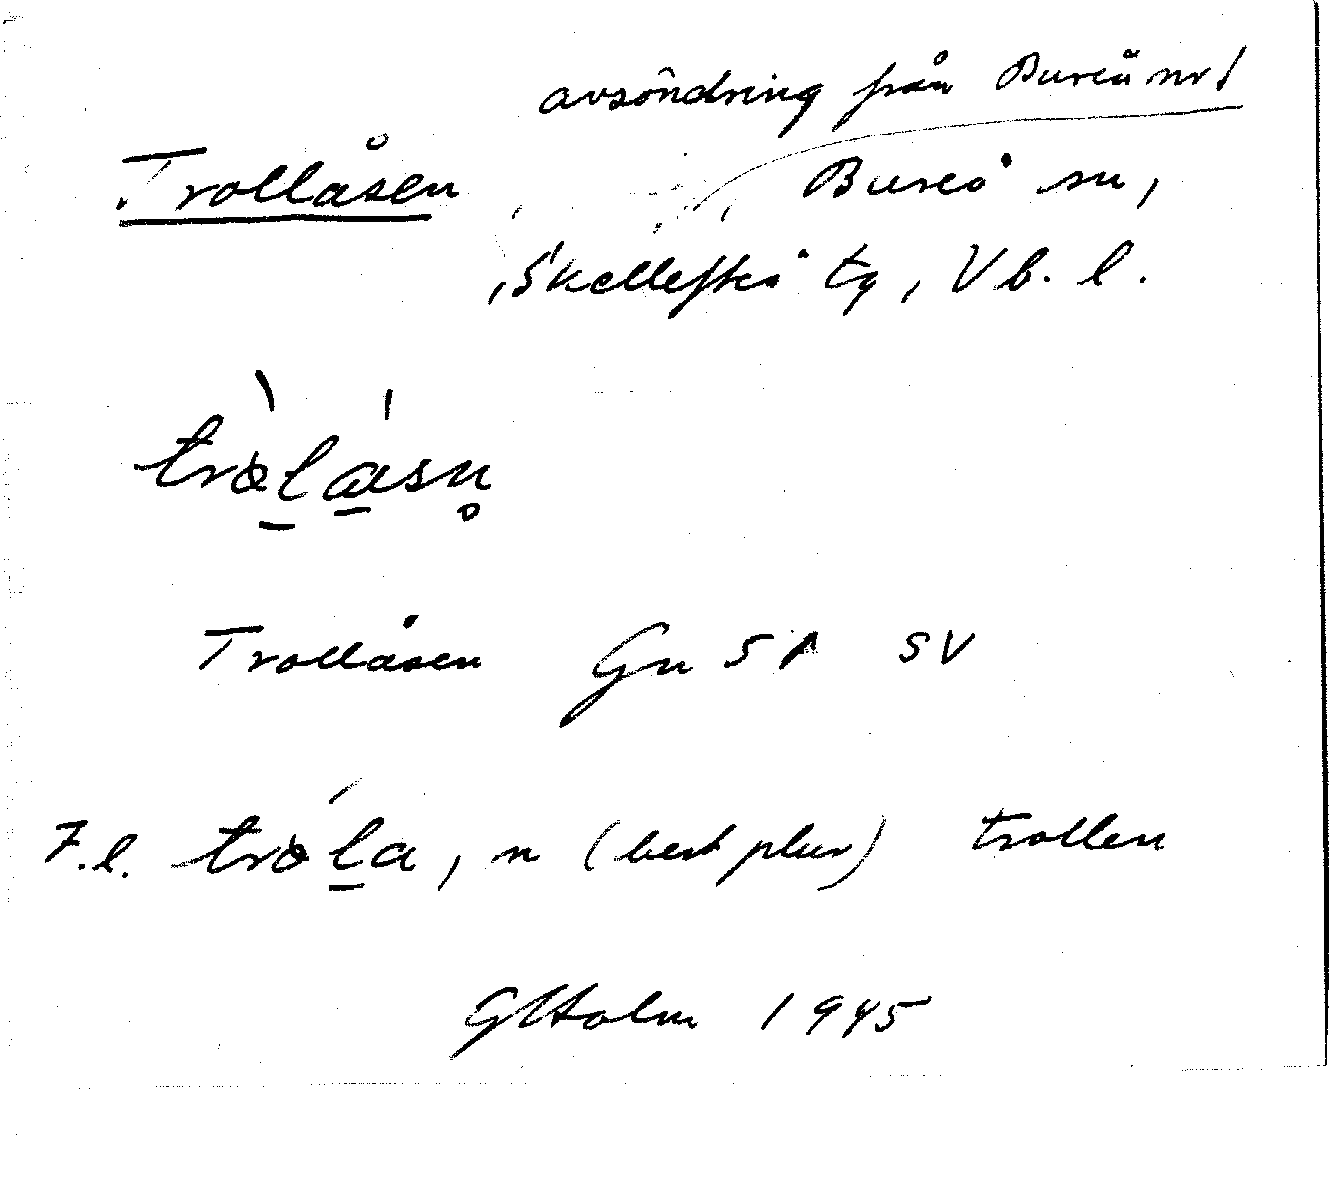 avsöndring från Bureå nr 1
Trollåsen, Bureå sn,
Skellefteå tg, Vb. l.
Trollåsen Gn 51 SV
F.l. , n (best plur) trollen
GHolm 1945